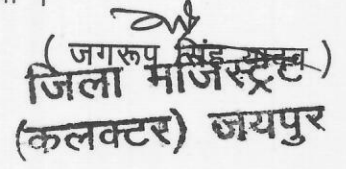 ( जगरूप सिंह यादव )
जिला मजिस्ट्रेट
(कलक्टर) जयपुर